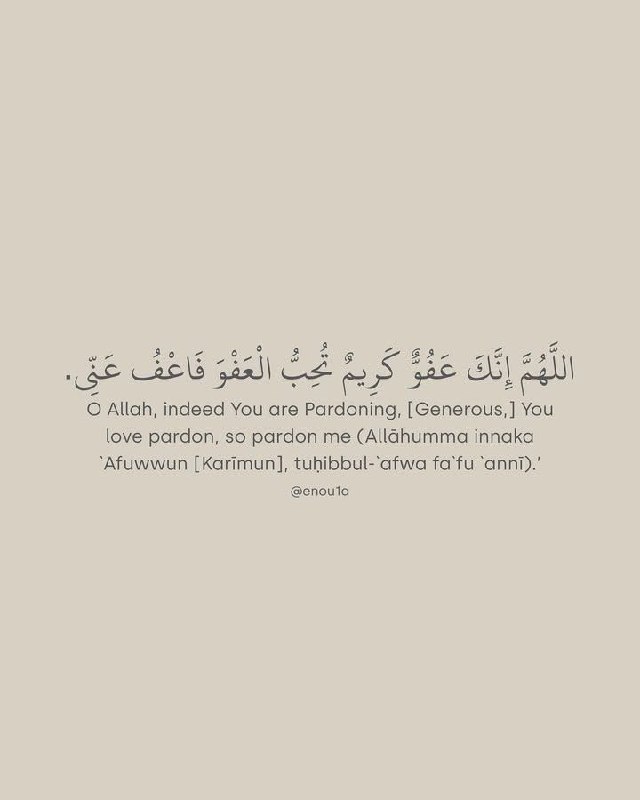 اللَّهُمَّ إِنَّكَ عَفُوٌّ كَرِيمٌ تُحِبُّ الْعَفْوَ فَاعْفُ عَنِّي.
O Allah, indeed You are Pardoning, [Generous,] You
love pardon, so pardon me (Allāhumma innaka
`Afuwwun [Karīmun], tuḥibbul-`afwa fa`fu `annī).’
@enou1a